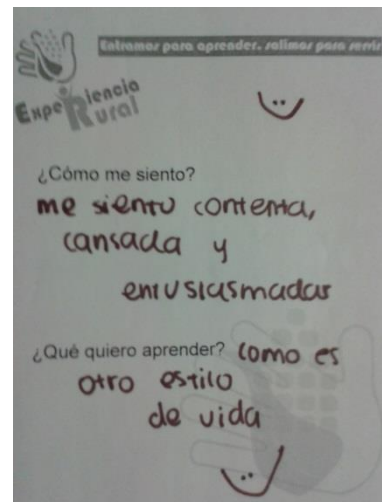 Entramos para aprender, salimos para servir
Experiencia
Rural
¿Cómo me siento?
me siento contenta,
cansada y
entusiasmadas
¿Qué quiero aprender? como es
otro estilo
de vida